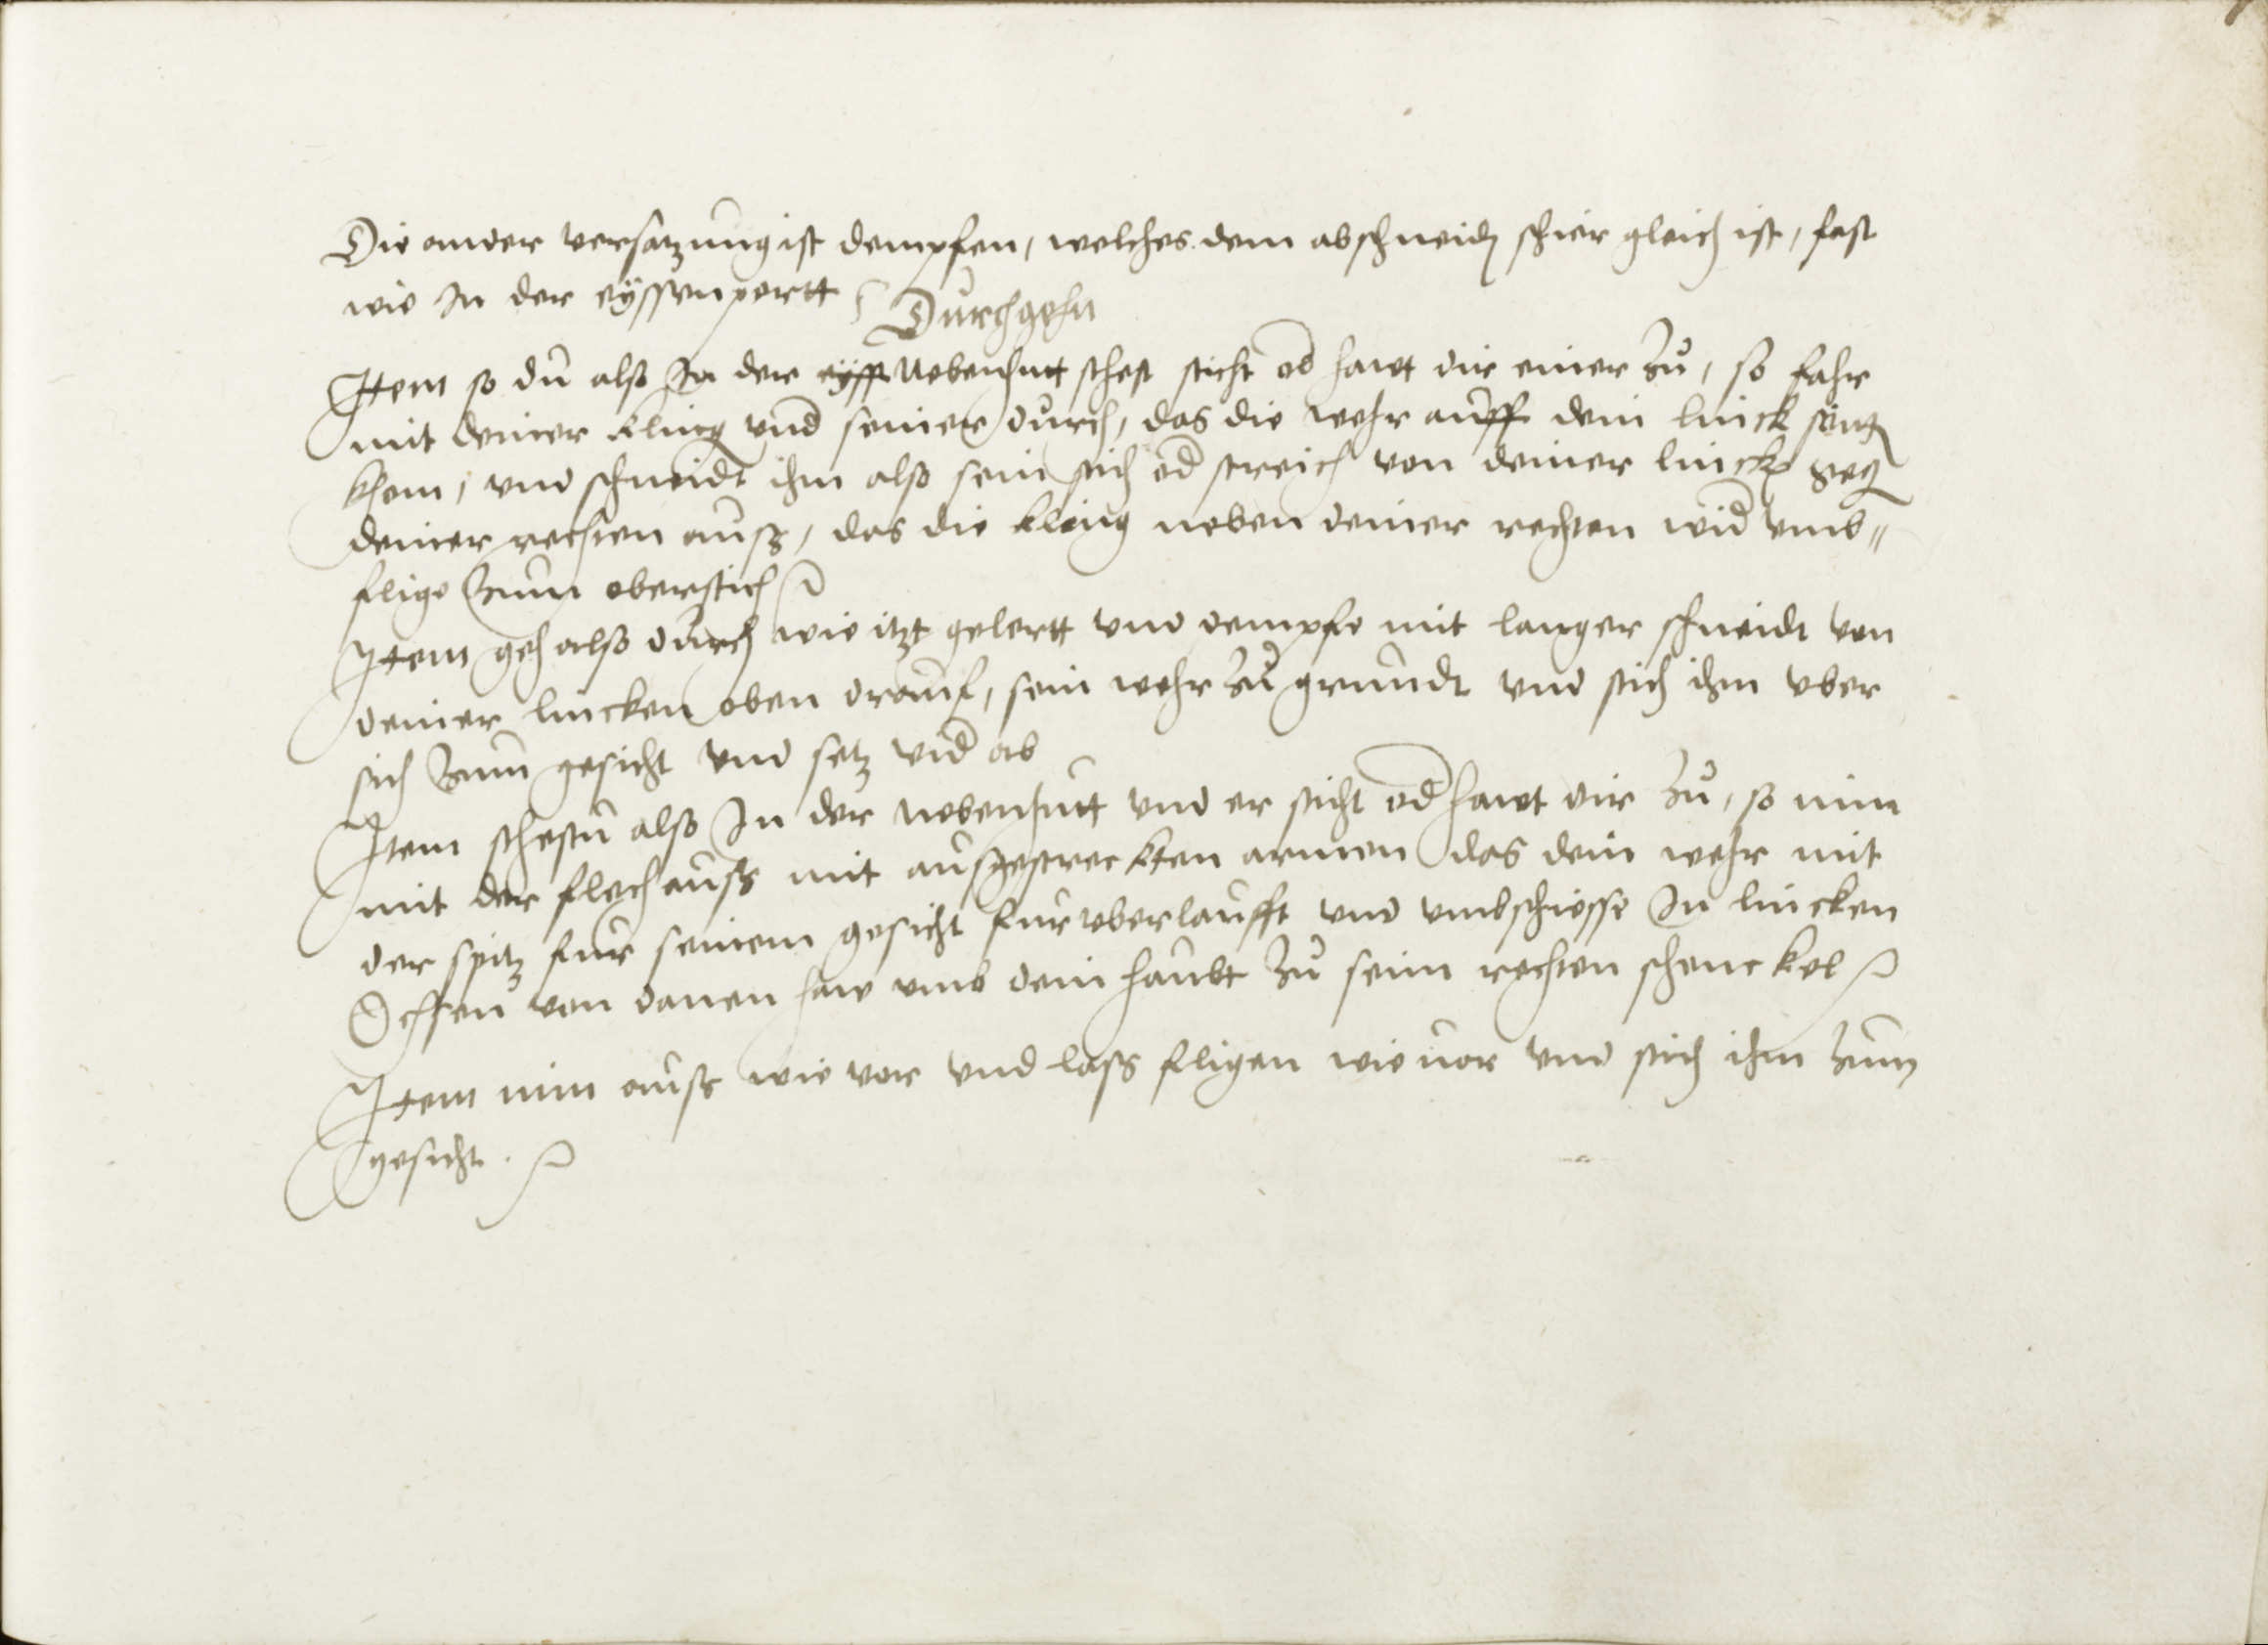 Die ander versatzung ist dempfen, welches dem abschneiden schier gleich ist, fast
wie In der eyssenportt
Durchgehn
Item so du also In der eyss Nebenhutt sthest sticht od hawt dir einer zu, so fahr
mit deiner kling vnd seiner durch, das die wehr auff dein linck seitt
khom, vnd schneidt ihm also sein stich od streich von deiner lincken gegen
deiner rechten auß, das die kling neben deiner rechten wid vmb〟
flige Zum oberstich
Item geh also durch wie itzt gelertt vnd dempfe mit langer schneidt von
deiner lincken oben drauf, sein wehr zu grundt vnd stich ihm vber
sich Zum gesicht vnd setz vid ab
Item sthestu also In der nebenhutt vnd er sticht od hawt dir zu, so nim
mit der flech auß mit ausgestreckten armen das dein wehr mit
der spitz fur seinem gesicht furvberlaufft vnd vmbschiesse In lincken
Ochsen von danen haw vmb dein haubt zu seim rechten schenckel
Item nim auß wie vor vnd laß fligen wie vor vnd stich ihm zum
gesicht.